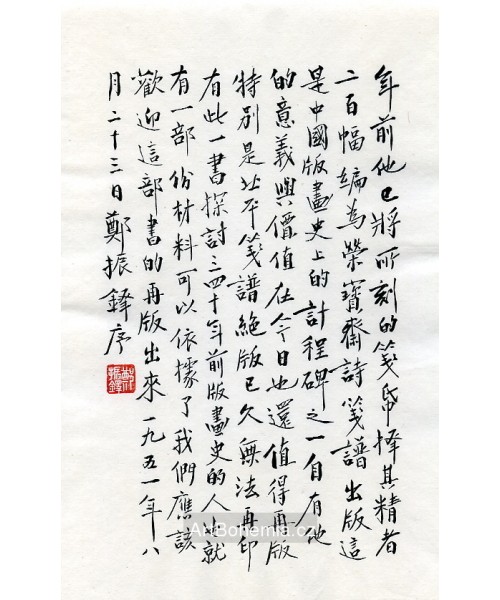 年前他已將所刻的箋帋擇其精者
二百幅編為榮寶齋詩箋譜出版這
是中國版畫史上的計程碑之一自有他
的意義與價值在今日也還值得再版
特別是北平箋譜絶版已久無法再印
有此一書探討三四十年前版畫史的人也就
有一部份材料可以依據了我們應該
歡迎這部書的再版出來一九五一年八
月二十三日鄭振鐸序
ArtBohemia.cz